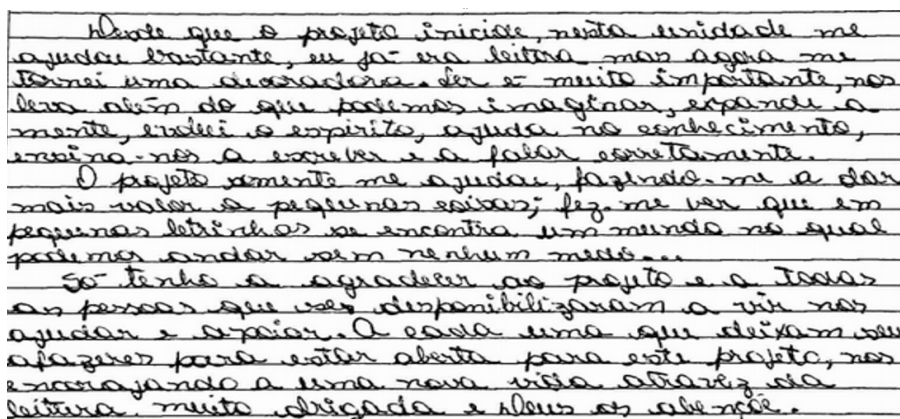 Desde que o projeto iniciou, nesta unidade me
ajudou bastante, eu já era leitora mas agora me
tornei uma devoradora. Ler é muito importante, nos
leva além do que podemos imaginar, expande a
mente, evolui o espirito, ajuda no conhecimento,
ensina-nos a escrever e a falar corretamente.
O projeto somente me ajudou, fazendo-me a dar
mais valor a pequenas coisas; fez-me ver que em
pequenas letrinhas se encontra um mundo no qual
podemos andar sem nenhum medo...
Só tenho a agradecer ao projeto e a todas
as pessoas que se disponibilizaram a vir nos
ajudar e apoiar. A cada uma que deixam seu
afazeres para estar aberta para este projeto, nos
encorajando a uma nova vida atravez da
leitura. muito obrigada e Deus os abençõe.